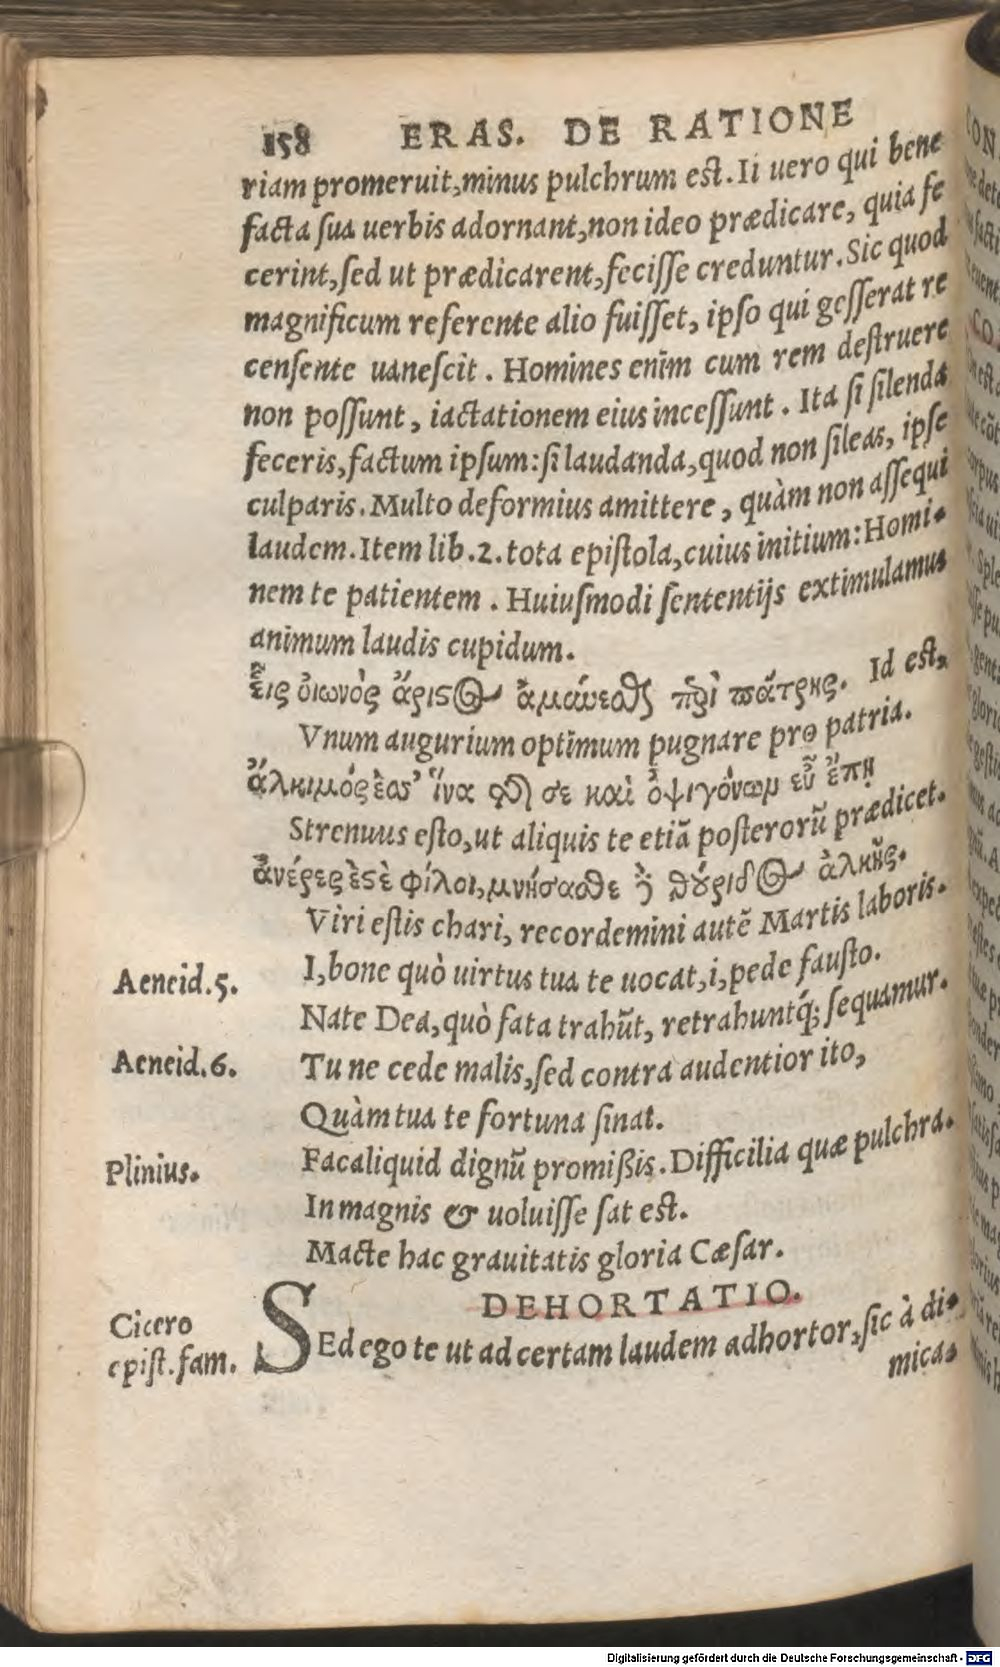 158 ERAS. DE RATIONE
riam promeruit, minus pulchrum est. Ii uero qui bene
facta sua uerbis adornant, non ideo prædicare, quia fe
cerint, sed ut prædicarent, fecisse creduntur. Sic quod
magnificum referente alio fuisset, ipso qui gesserat re
censente uanescit. Homines enim cum rem destruere
non possunt, iactationem eius incessunt. Ita si silenda
feceris, factum ipsum: si laudanda, quod non sileas, ipse
culparis. Multo deformius amittere, quàm non assequi
laudem. Item lib. 2. tota epistola, cuius initium: Homi-
nem te patientem. Huiusmodi sententijs extimulamus
animum laudis cupidum.
εἷις ὀιωνὸς ἄριστος ἀμύνεσθαι περὶ πάτρης. Id est,
Vnum augurium optimum pugnare pro patria.
ἄλκιμός ἐσσ' ἵνα τίς σε καὶ ὀψιγόνωμ εὖ ἔπῃ
Strenuus esto, ut aliquis te etiã posterorũ prædicet.
ἀνέρες ἐστὲ φίλοι, μνήσασθε δὲ θούριδος ἀλκῆς.
Viri estis chari, recordemini autẽ Martis laboris.
I, bone quò uirtus tua te uocat, i, pede fausto.
Aeneid. 5. Nate Dea, quò fata trahũt, retrahuntq́; sequamur.
Aeneid. 6. Tu ne cede malis, sed contra audentior ito,
Quàm tua te fortuna sinat.
Plinius. Fac aliquid dignũ promißis. Difficilia quæ pulchra.
In magnis & uoluisse sat est.
Macte hac grauitatis gloria Cæsar.
DEHORTATIO.
Cicero
epist. fam. SEd ego te ut ad certam laudem adhortor, sic à di-
mica-
Digitalisierung gefördert durch die Deutsche Forschungsgemeinschaft - DFG